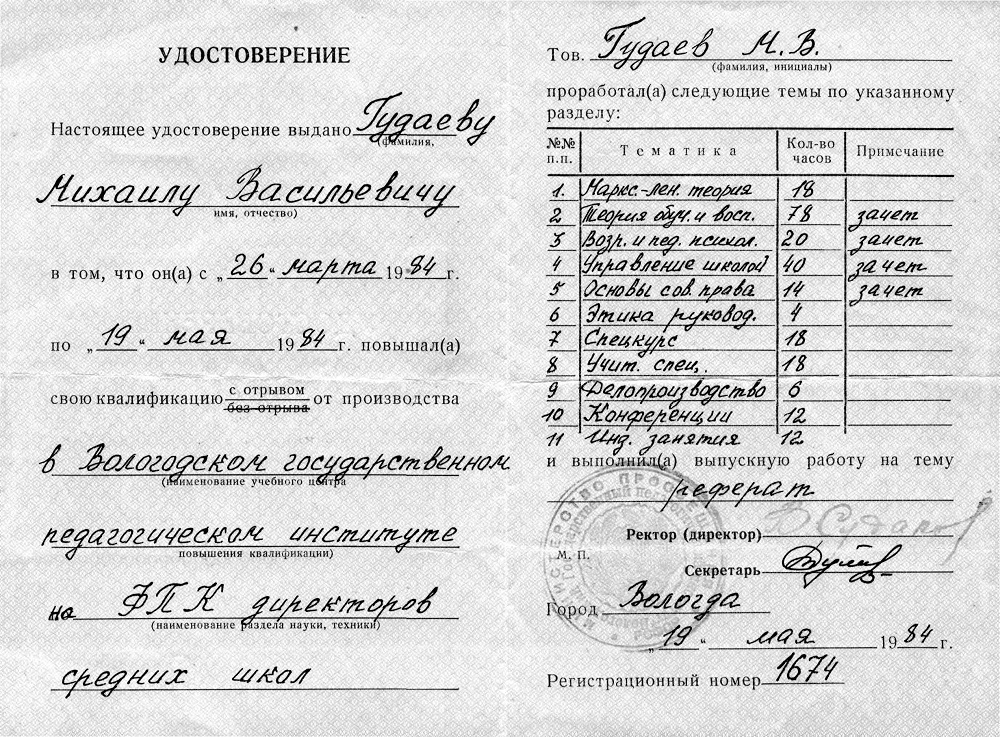 УДОСТОВЕРЕНИЕ
Настоящее удостоверение выдано Гудаеву
(фамилия,
Михаилу Васильевичу
имя, отчество)
в том, что он(а) с „26“ марта 1984 г.
по „19“ мая 1984 г. повышал(а)
свою квалификацию с отрывом
без отрыва от производства
в Вологодском государственном
(наименование учебного центра
педагогическом институте
повышения квалификации)
на ФПК директоров
(наименование раздела науки, техники)
средних школ
Тов. Гудаев М. В.
(фамилия, инициалы)
проработал(а) следующие темы по указанному
разделу:
№№ п.п. Тематика Кол-во часов Примечание
1. Маркс.-лен. теория 18
2 Теория обуч. и восп. 78 зачет
3 Возр. и пед. психол. 20 зачет
4 Управление школой 40 зачет
5 Основы сов. права 14 зачет
6 Этика руковод. 4
7 Спецкурс 18
8 Учит. спец. 18
9 Делопроизводство 6
10 Конференции 12
11 Инд. занятия 12
и выполнил(а) выпускную работу на тему
реферат
Ректор (директор)
М. П.
Секретарь
Город Вологда
„19“ мая 1984 г.
Регистрационный номер 1674